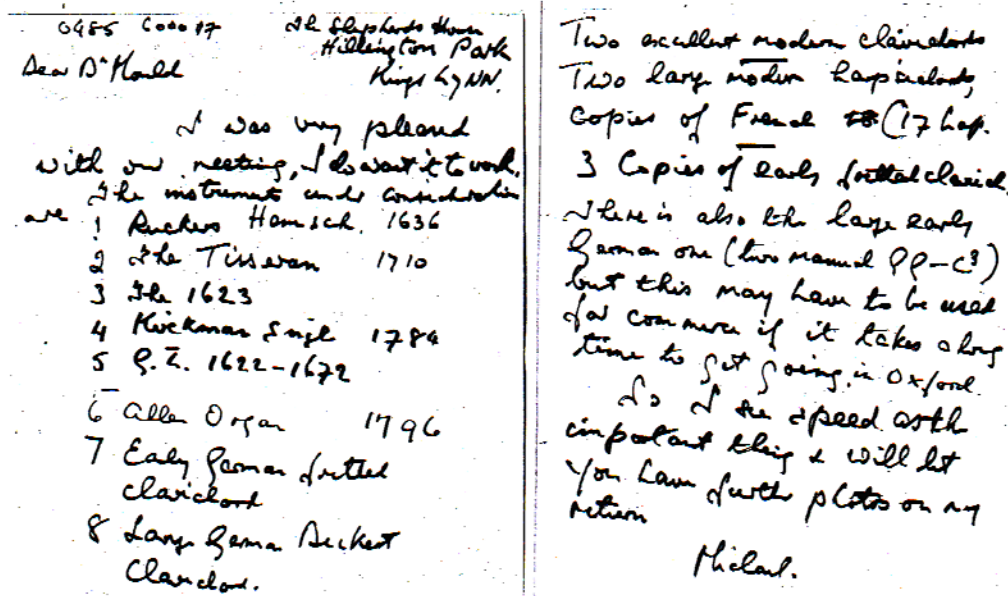 0485 6000 17 The Shepherds House
Hillington Park
Kings LYNN.
Dear Dr Mould
I was very pleased
with our meeting, I do want it to work.
The instruments under consideration
are 1 Ruckers Hemsch. 1636
2 The Tisseran 1710
3 The 1623
4 Kirckman Single 1784
5 1622-1672
6 Allen Organ 1796
7 Early German fretted
clavichord
8 Large German
Clavichord.
Two excellent modern clavichords
Two large modern harpsichords,
copies of French (17
3 Copies of early fretted clavich.
There is also the large early
German one (two manual - C3)
but this may have to be used
for commerce if it takes a long
time to get going in Oxford.
So I see speed as the
important thing & will let
you have further photos on my
return
Michael.